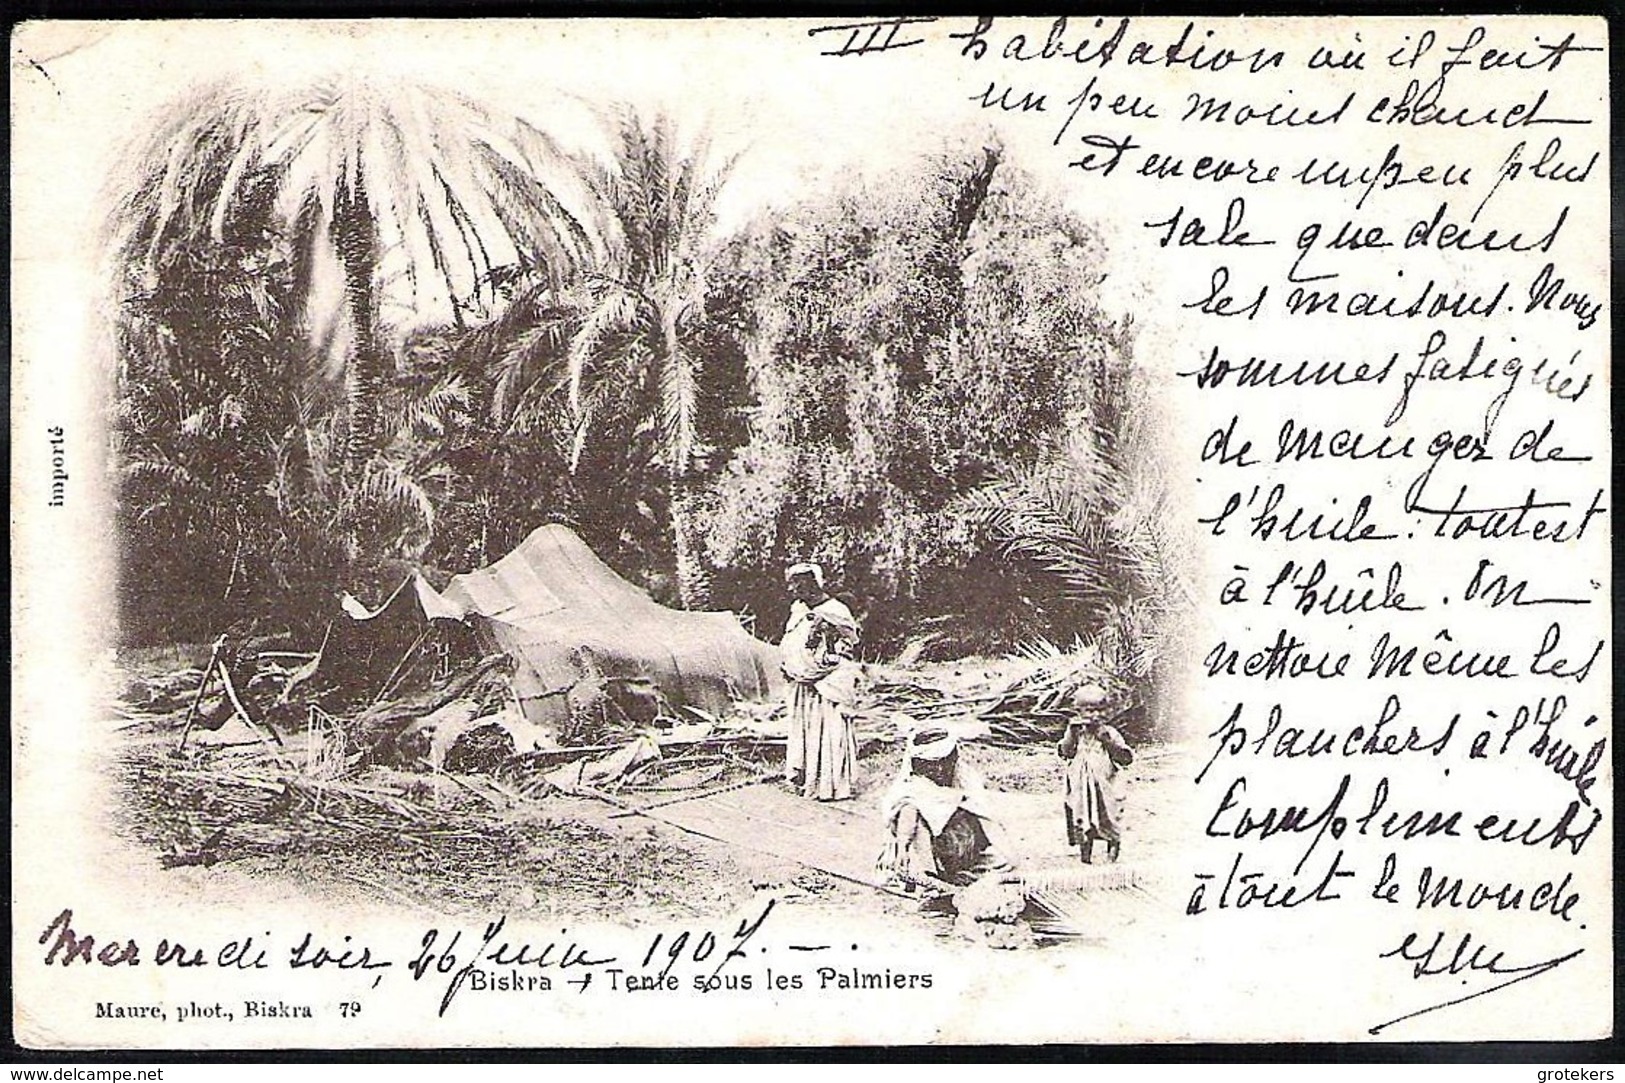 III habitation où il fait
un peu moins chaud
et encore un peu plus
sale que dans
les maisons. Nous
sommes fatigués
de manger de
l'huile : tout est
à l'huîle. On
nettoie même les
planchers à l'huile
Compliments
à tout le monde.
importé
Mercredi soir, 26 Juin 1907. — .
Biskra - Tente sous les Palmiers
Maure, phot., Biskra 79
www.delcampe.net
grotekers